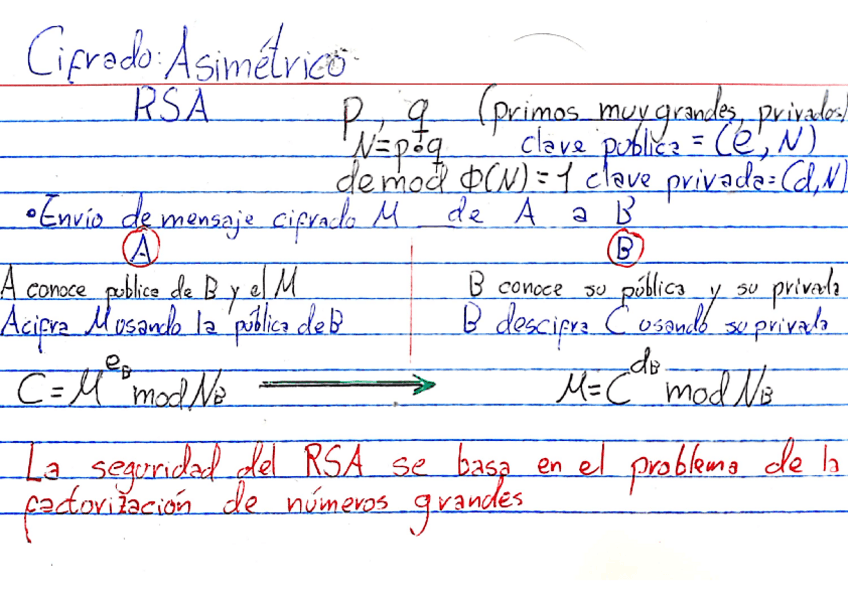 Cifrado: Asimétrico
RSA p, q (primos muy grandes, privados)
N=p•q clave publica = (e, N)
de mod Φ(N) = 1 clave privada=(d,N)
•Envío de mensaje cifrado M de A a B
A B
A conoce publica de B y el M B conoce su pública y su privada
A cifra M usando la pública de B B descifra C usando su privada
C = M^eB mod NB → M = C^dB mod NB
La seguridad del RSA se basa en el problema de la
factorización de números grandes